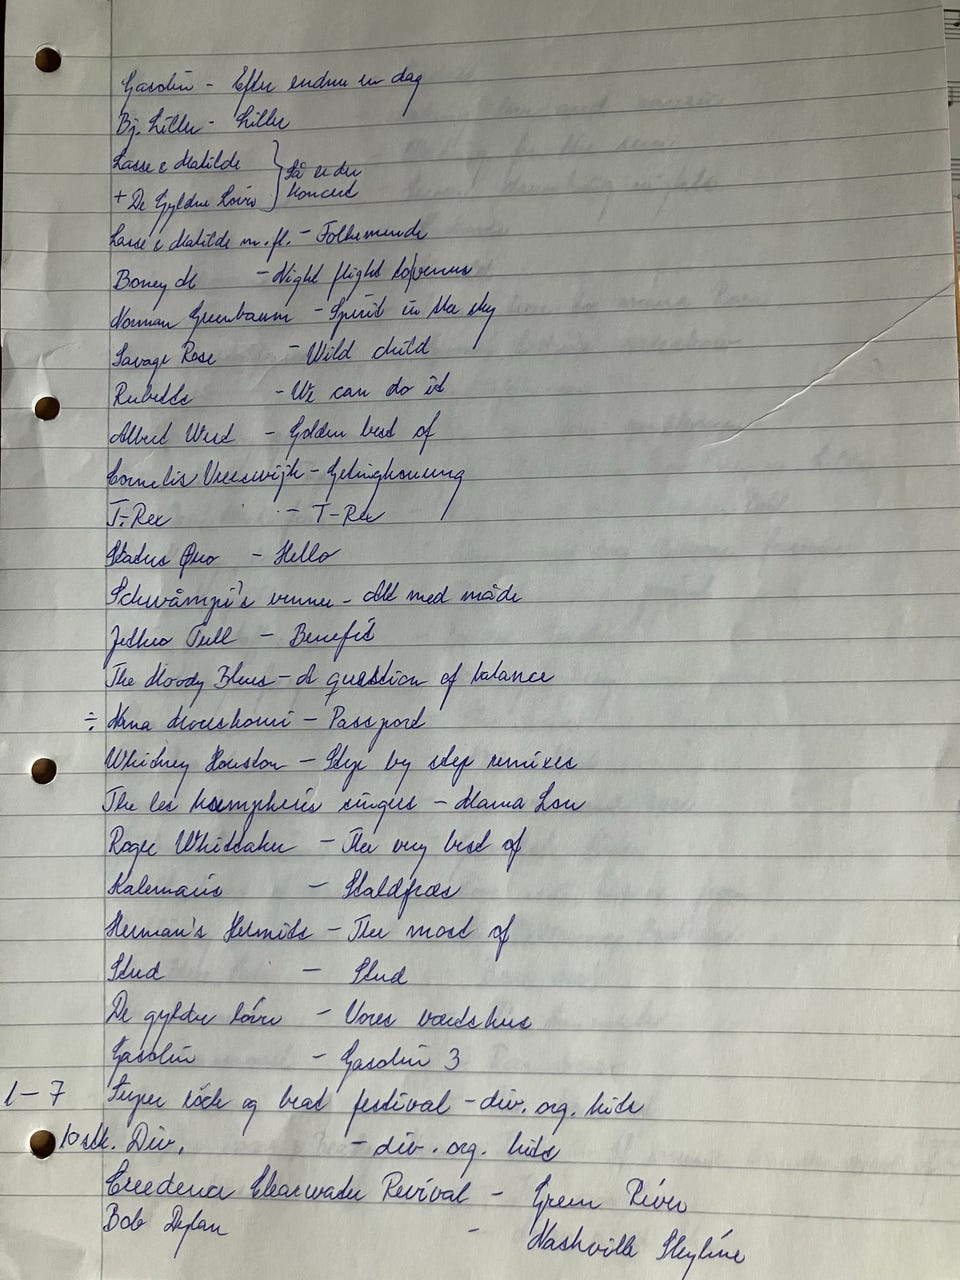 Gasolin - Efter endnu en dag
Bj. Lille - Lille
Lasse & Matilde } Så er der
+ De Gyldne Løver } koncert
Lasse & Matilde m.fl. - Folkemunde
Boney M - Night flight to venus
Norman Greenbaum - Spirit in the sky
Savage Rose - Wild child
Rubetts - We can do it
Albert West - Golden best of
Cornelis Vreeswijk - Getinghonung
T-Rex - T-Rex
Status Quo - Hello
Schwämpi's venner - Alt med måde
Jethro Tull - Benefit
The Moody Blues - A question of balance
÷ Nana Mouskouri - Passport
Whitney Houston - Step by step remixes
The les humpheris singers - Mama Lou
Roger Whittaker - The very best of
Kalemaris - Staldfræs
Herman's Hermits - The most of
Stud - Stud
De gyldne løver - Vores værtshus
Gasolin - Gasolin 3
1-7 Super rock og beat festival - div. org. hits
10 stk. Div. - div. org. hits
Creedence Clearwater Revival - Green River
Bob Dylan - Nashville Skyline